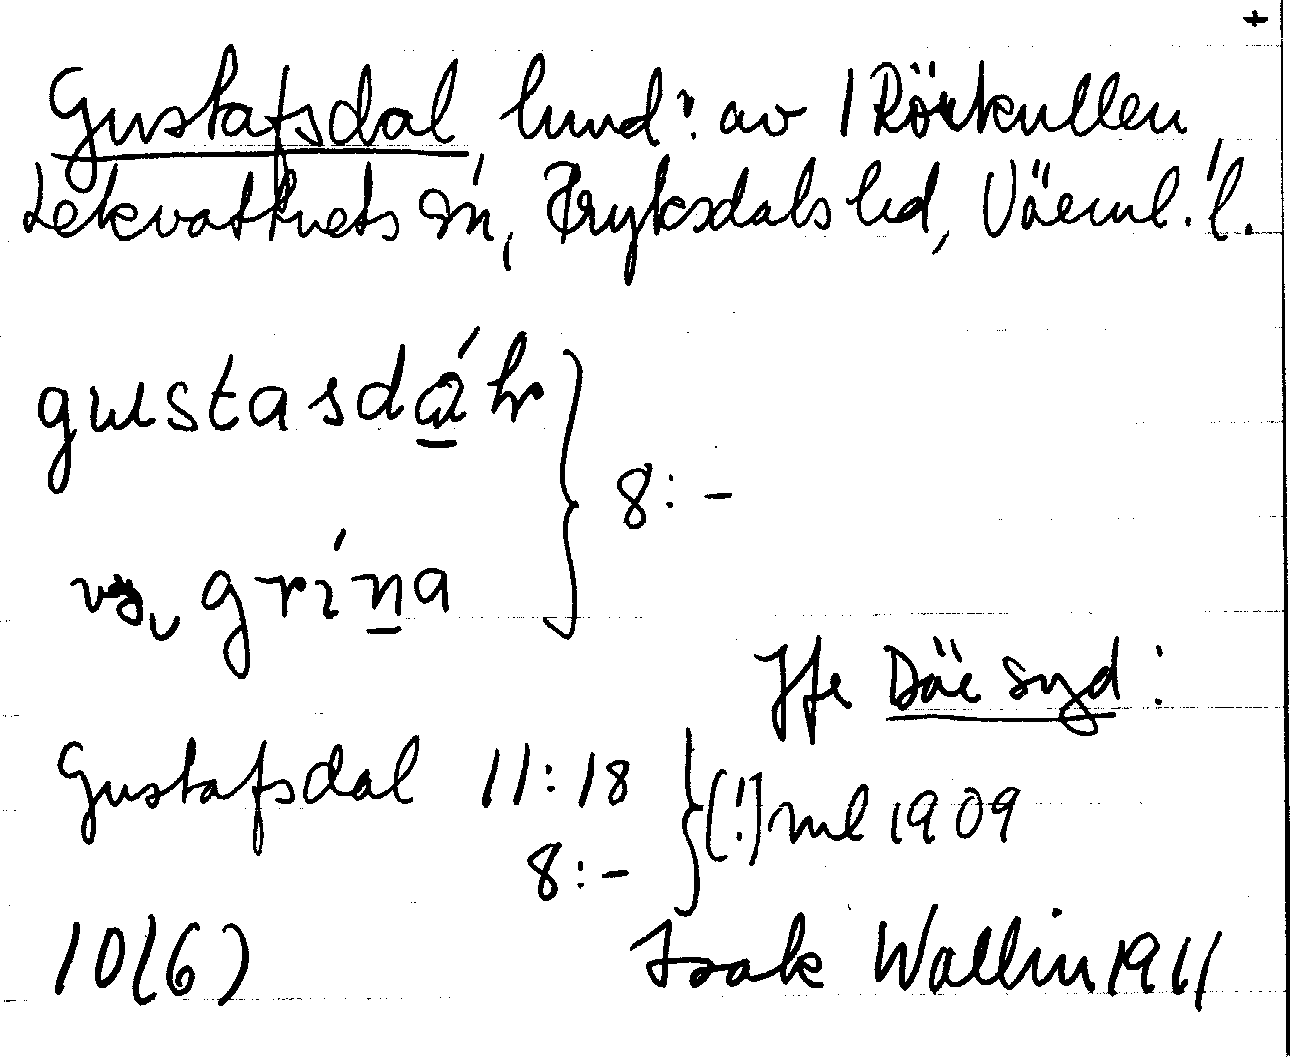 +
Gustafsdal lund: av 1 Rörkullen
Lekvattnets sn, Fryksdals hd, Värml. l.
gustasdá
8:-
grína
Jfr Där syd:
Gustafsdal 11:18
(!) ml 1909
8:-
10(6) Isak Wallin 1911